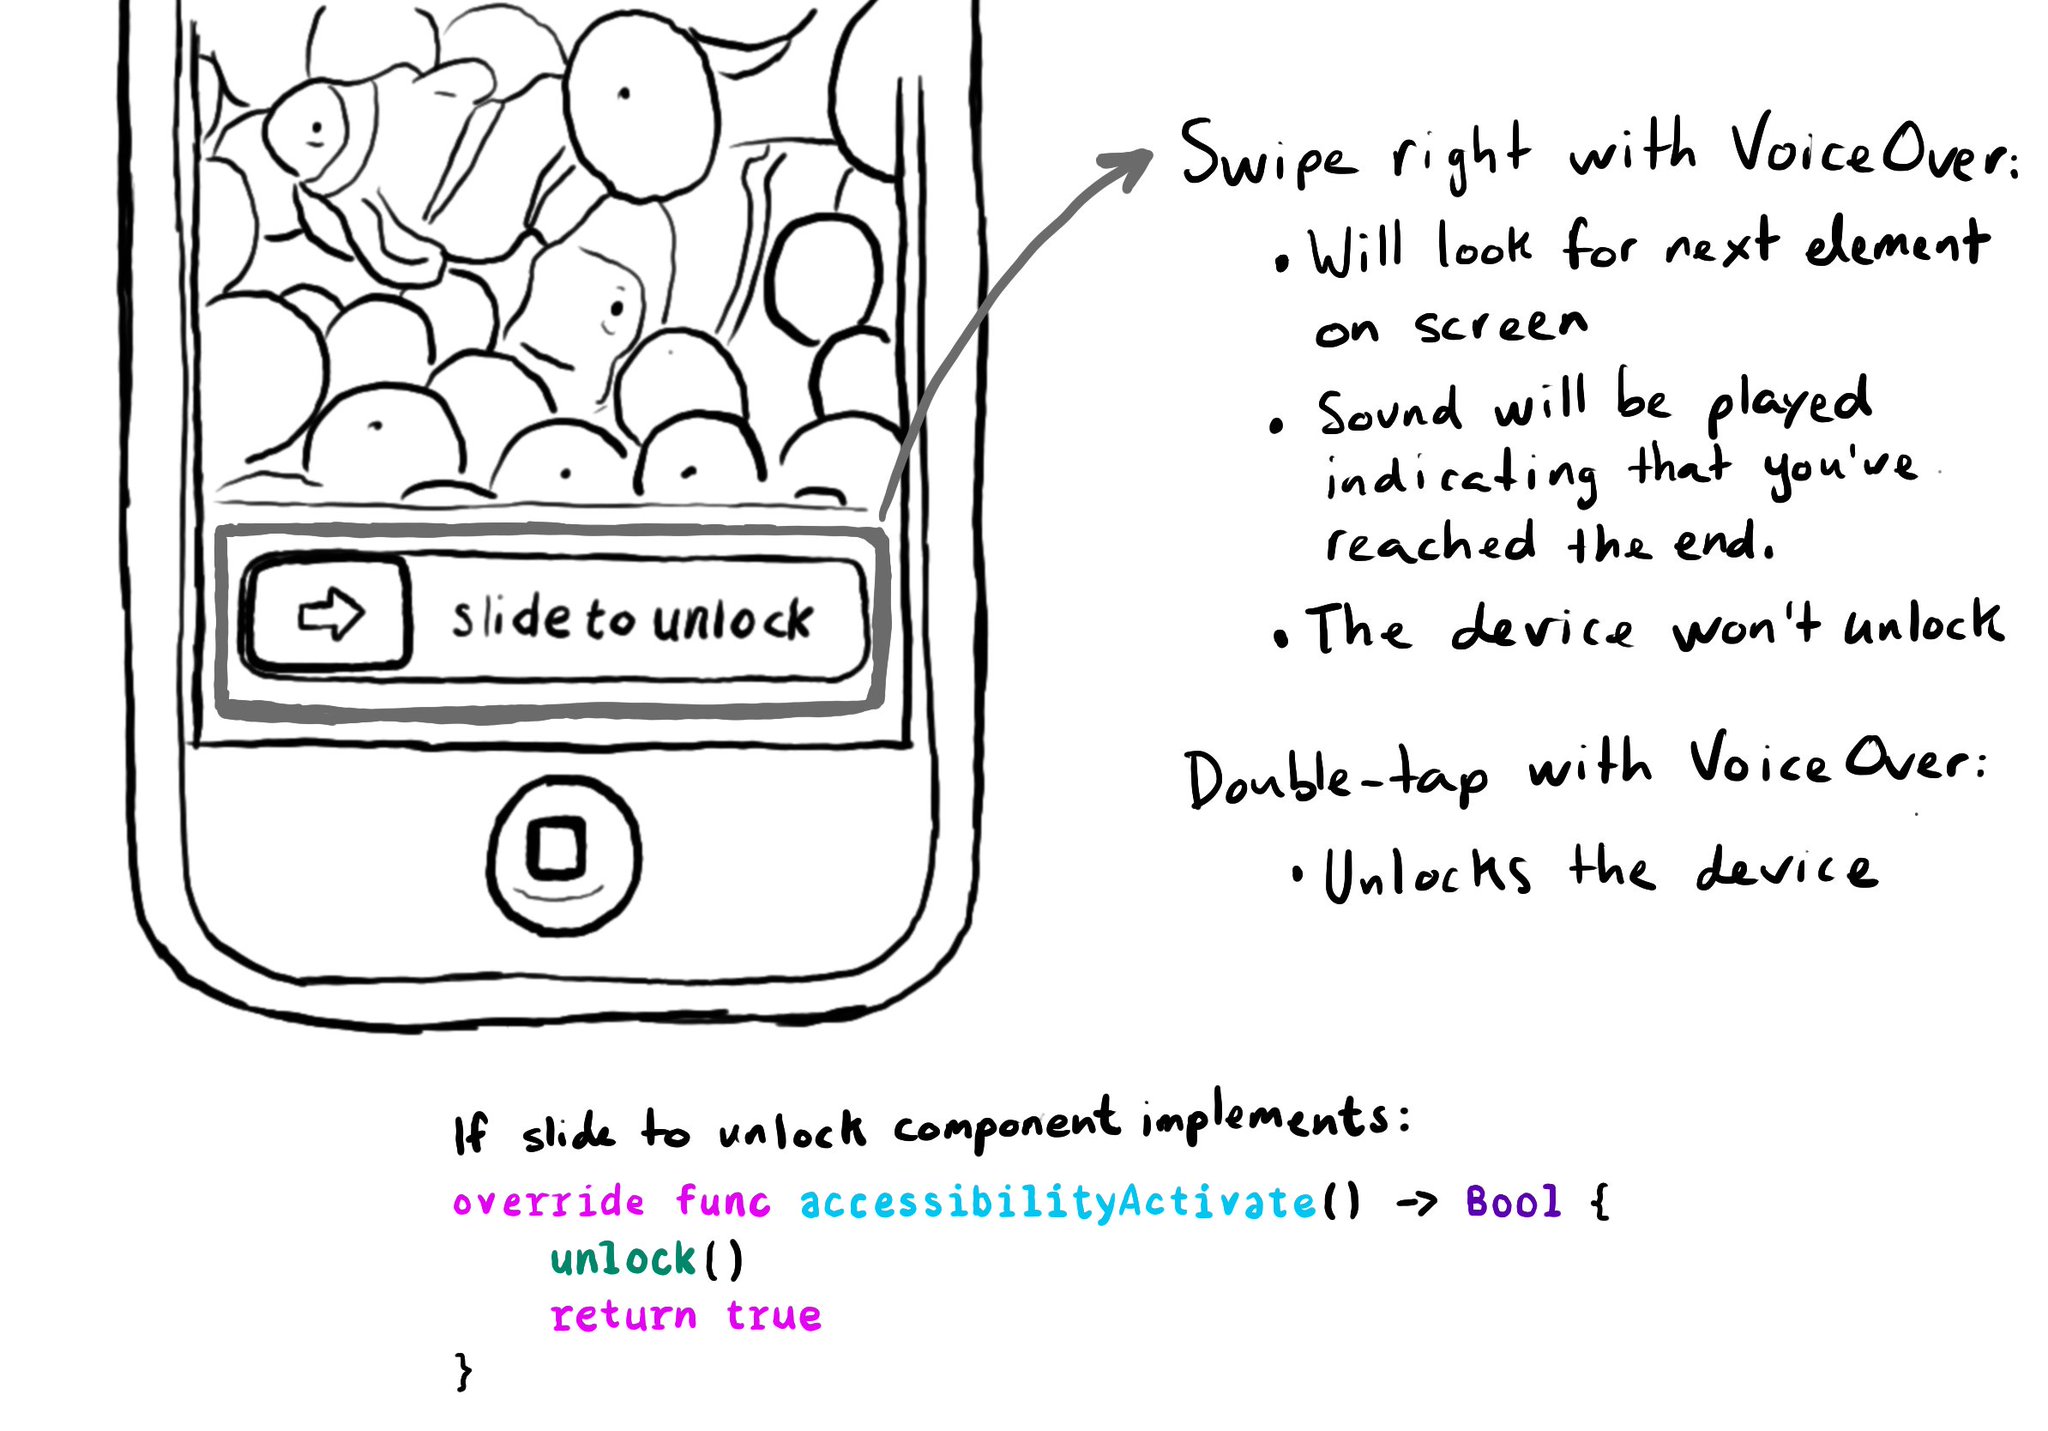 slide to unlock
Swipe right with VoiceOver:
• Will look for next element
on screen
• Sound will be played
indicating that you've
reached the end.
• The device won't unlock
Double-tap with VoiceOver:
• Unlocks the device
If slide to unlock component implements:
override func accessibilityActivate() -> Bool {
unlock()
return true
}